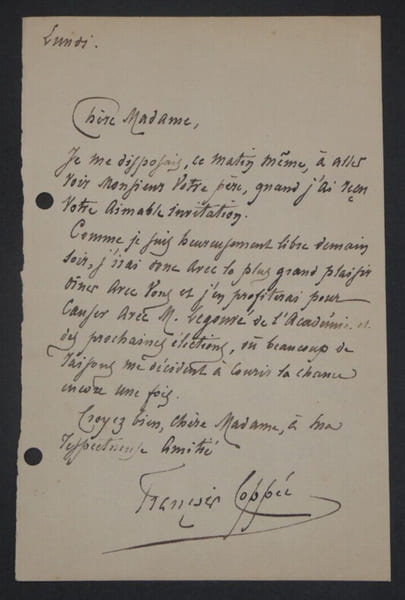 Lundi.
Chère Madame,
Je me disposais, ce matin même, à aller
voir Monsieur votre père, quand j'ai reçu
votre aimable invitation.
Comme je suis heureusement libre demain
soir, j'irai donc avec le plus grand plaisir
dîner avec vous et j'en profiterai pour
causer avec M. Legouvé de l'Académie et
des prochaines élections, où beaucoup de
raisons me décident à courir la chance
encore une fois.
Croyez bien, chère Madame, à ma
respectueuse amitié
François Coppée